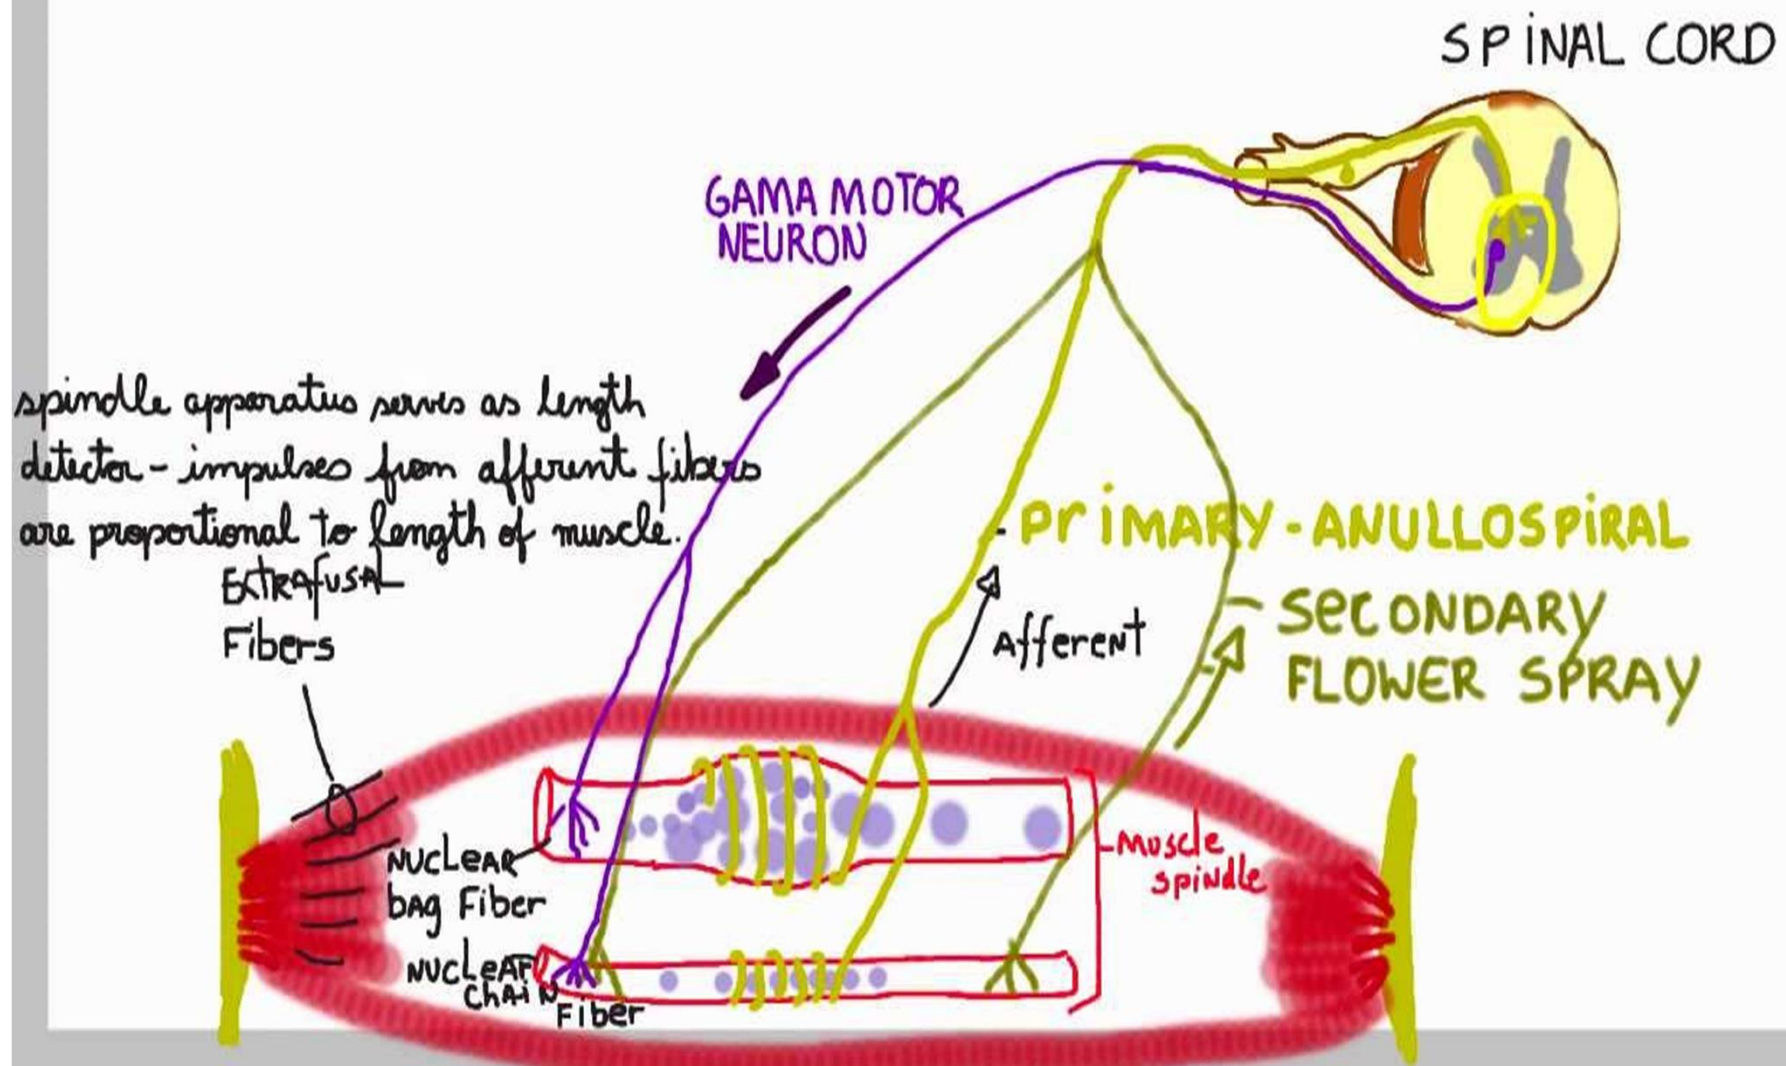 SPINAL CORD
GAMA MOTOR
NEURON
spindle apparatus serves as length
detector - impulses from afferent fibers
are proportional to length of muscle.
EXTRAFUSAL
Fibers
- PriMARY - ANULLOSPIRAL
Afferent
- SECONDARY
FLOWER SPRAY
NUCLEAR
bAg Fiber
Muscle
spindle
NUCLEAR
ChAiN
Fiber